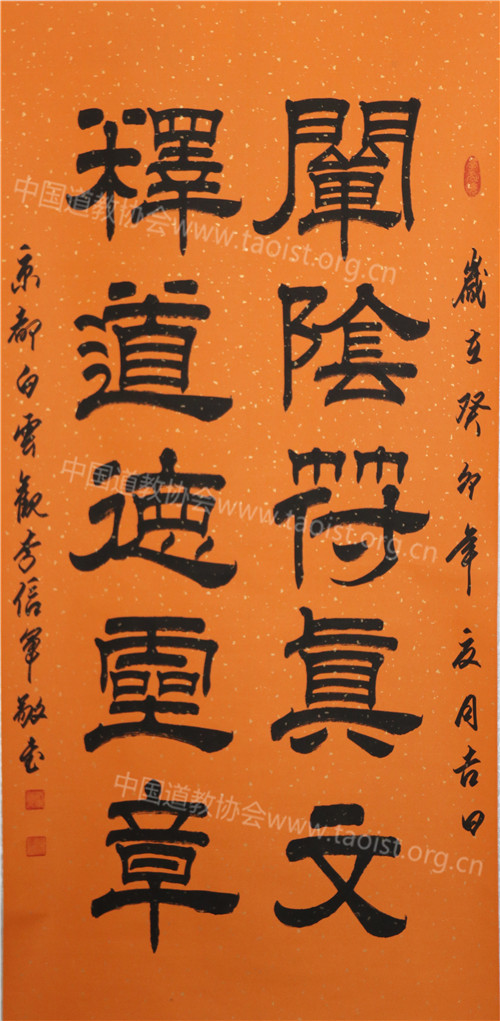 歲在癸卯年夏月吉日
闡陰符真文
釋道德靈章
京都白雲觀李信軍敬書
中国道教协会www.taoist.org.cn
中国道教协会www.taoist.org.cn
中国道教协会www.taoist.org.cn